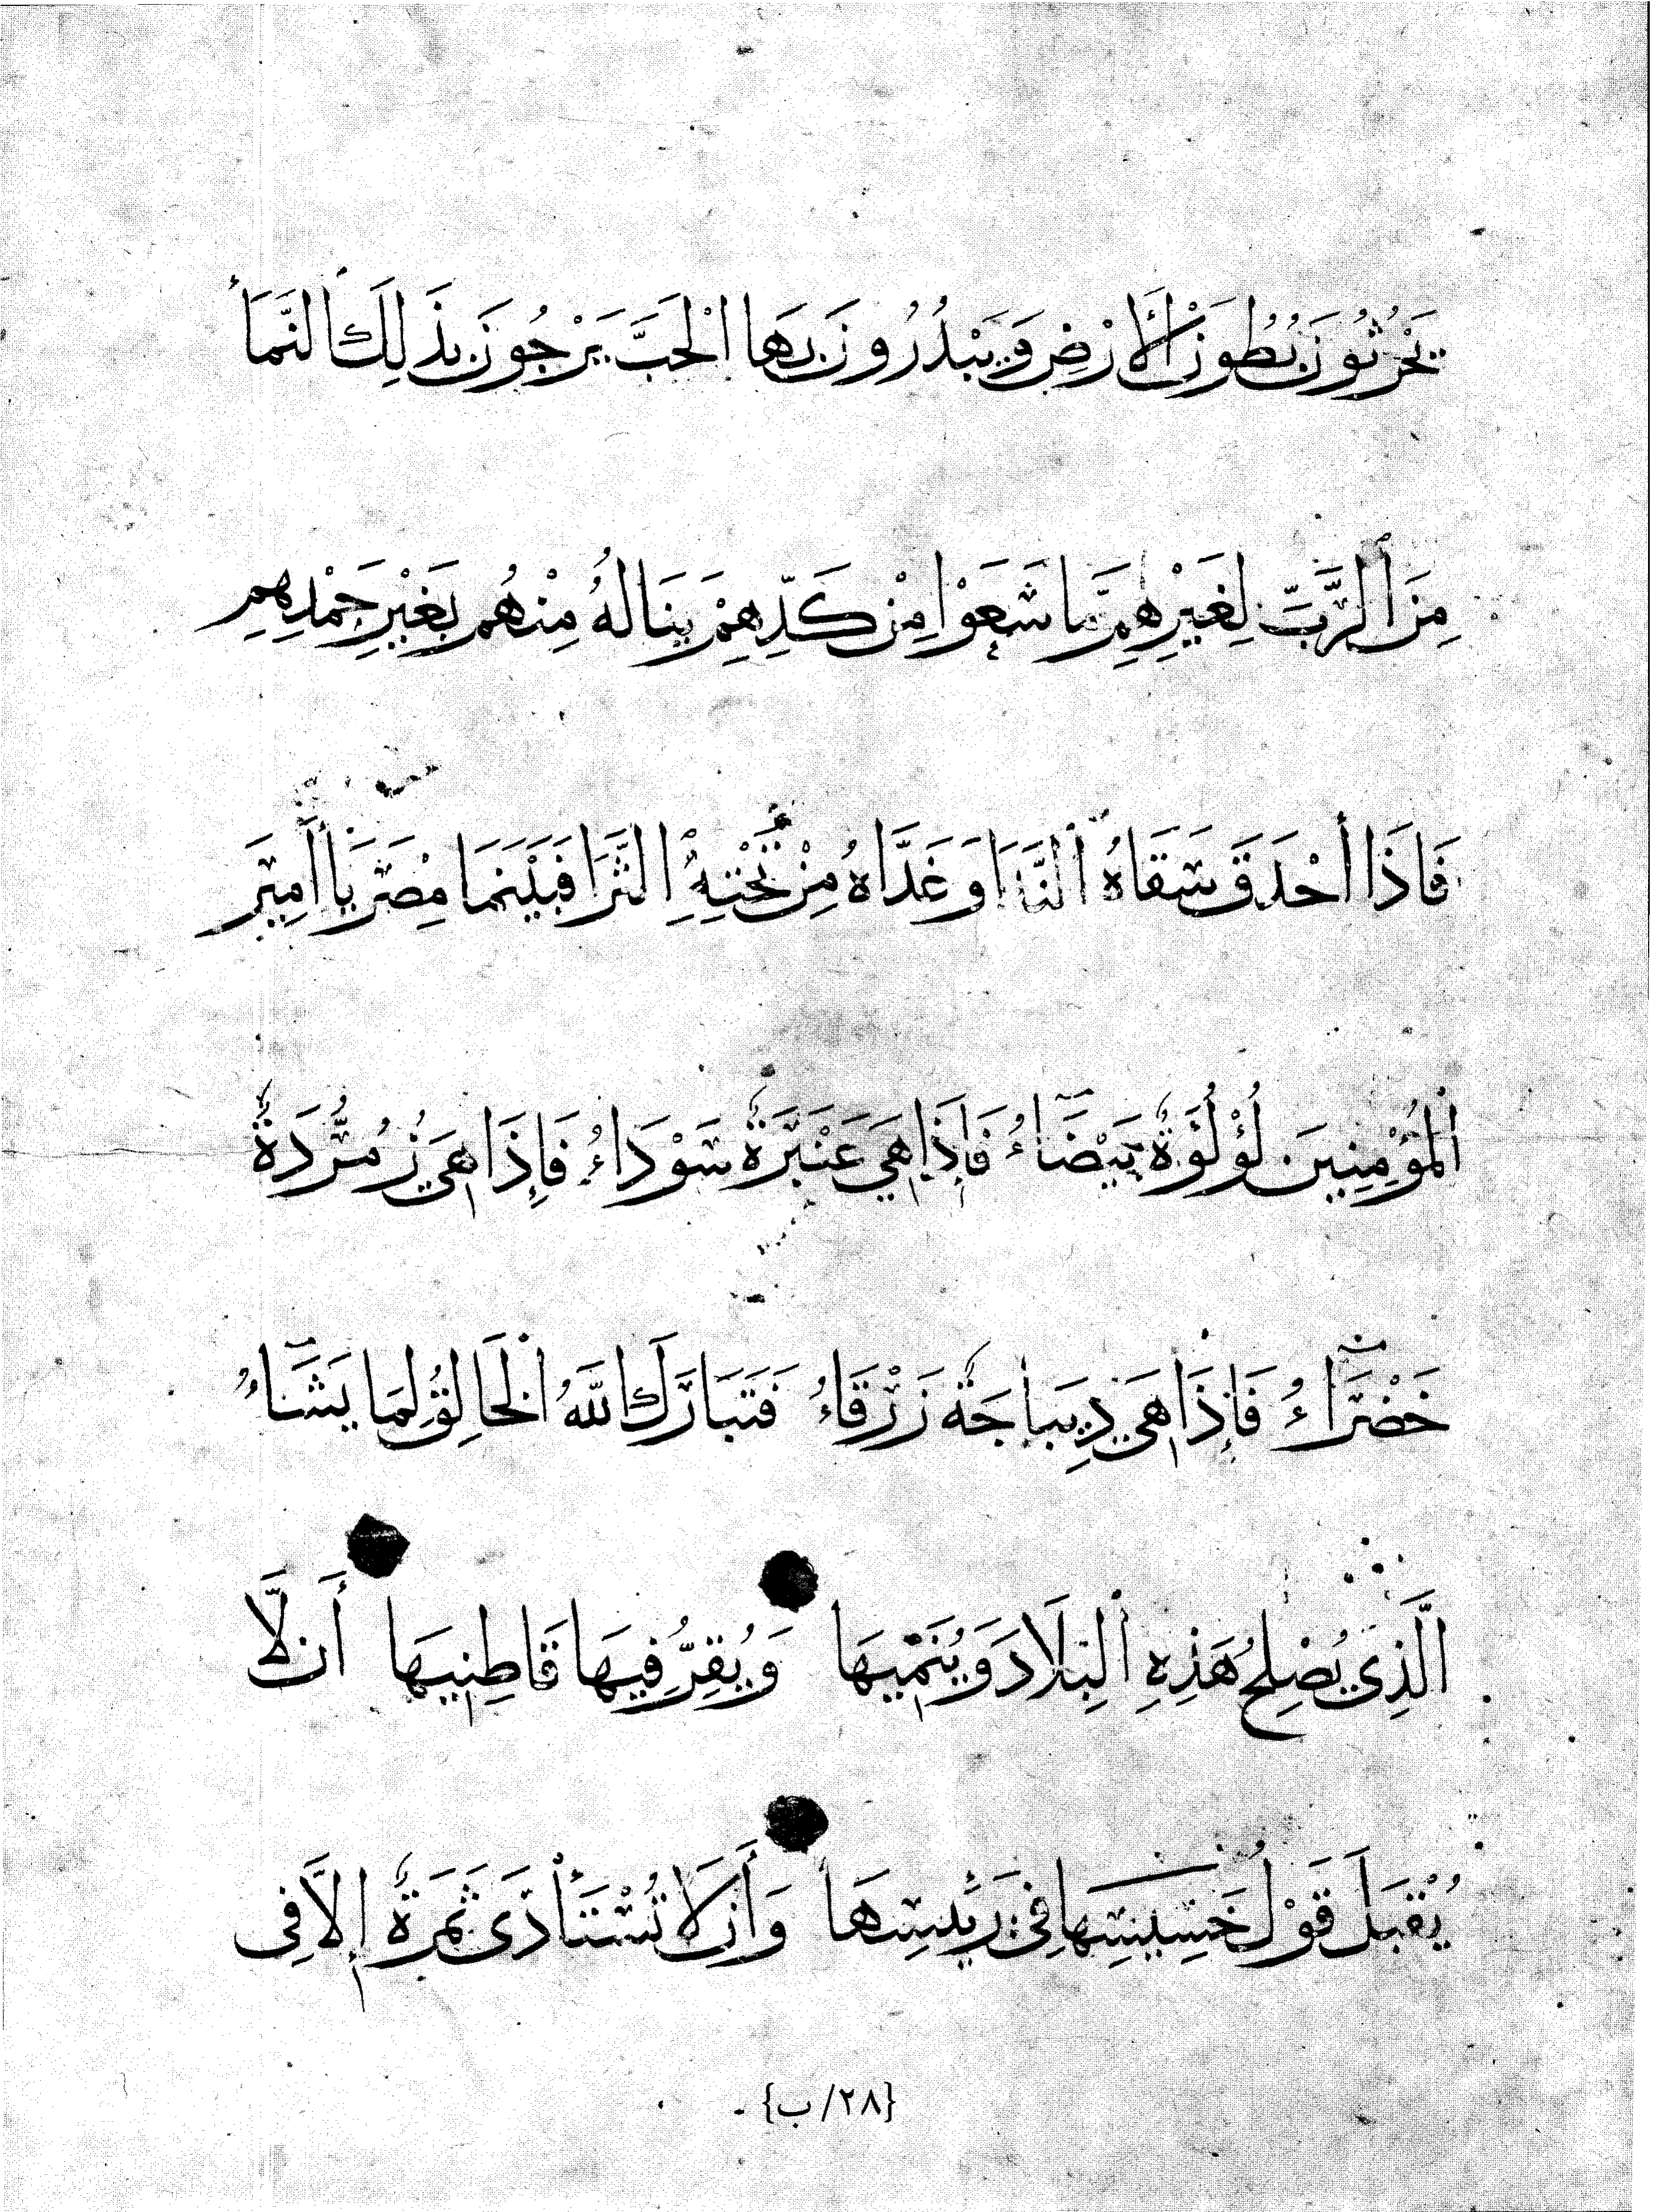 يَحْرُثُونَ بُطُونَ الْأَرْضِ وَيَبْذُرُونَ بِهَا الْحَبَّ يَرْجُونَ بِذَلِكَ النَّمَاْ
مِنَ الرَّبِّ لِغَيْرِهِمِ مَّا سَعَوْا مِنْ كَدِّهِمْ يَنَالُهُ مِنْهُم بِغَيْرِ جَهْدِهِمِ
فَإِذَا أَحْدَقَ سَقَاهُ النَّدَا وَغَذَّاهُ مِنْ تَحْتِهِ الثَّرَا فَبَيْنَمَا مِصْرَ يَا أَمِيرَ
الْمُؤْمِنِينَ لُؤْلُؤَةٌ بَيْضَاءُ فَإِذَا هِيَ عَنْبَرَةٌ سَوْدَاءُ فَإِذَا هِيَ زُمُرَّدَةٌ
خَضْرَاءُ فَإِذَا هِيَ دِيبَاجَةٌ زَرْقَاءُ فَتَبَارَكَ اللَّهُ الْخَالِقُ لِمَا يَشَاءُ
الَّذِي يُصْلِحُ هَذِهِ الْبِلَادَ وَيُنَمِّيهَا وَيُقِرُّ فِيهَا قَاطِنِيهَا أَن لَّا
يُقْبَلَ قَوْلُ خَسِيسِهَا فِي رَئِيسِهَا وَأَن لَا تُسْتَأْذَى ثَمَرَةٌ إِلَّا فِي
{٢٨/ب}